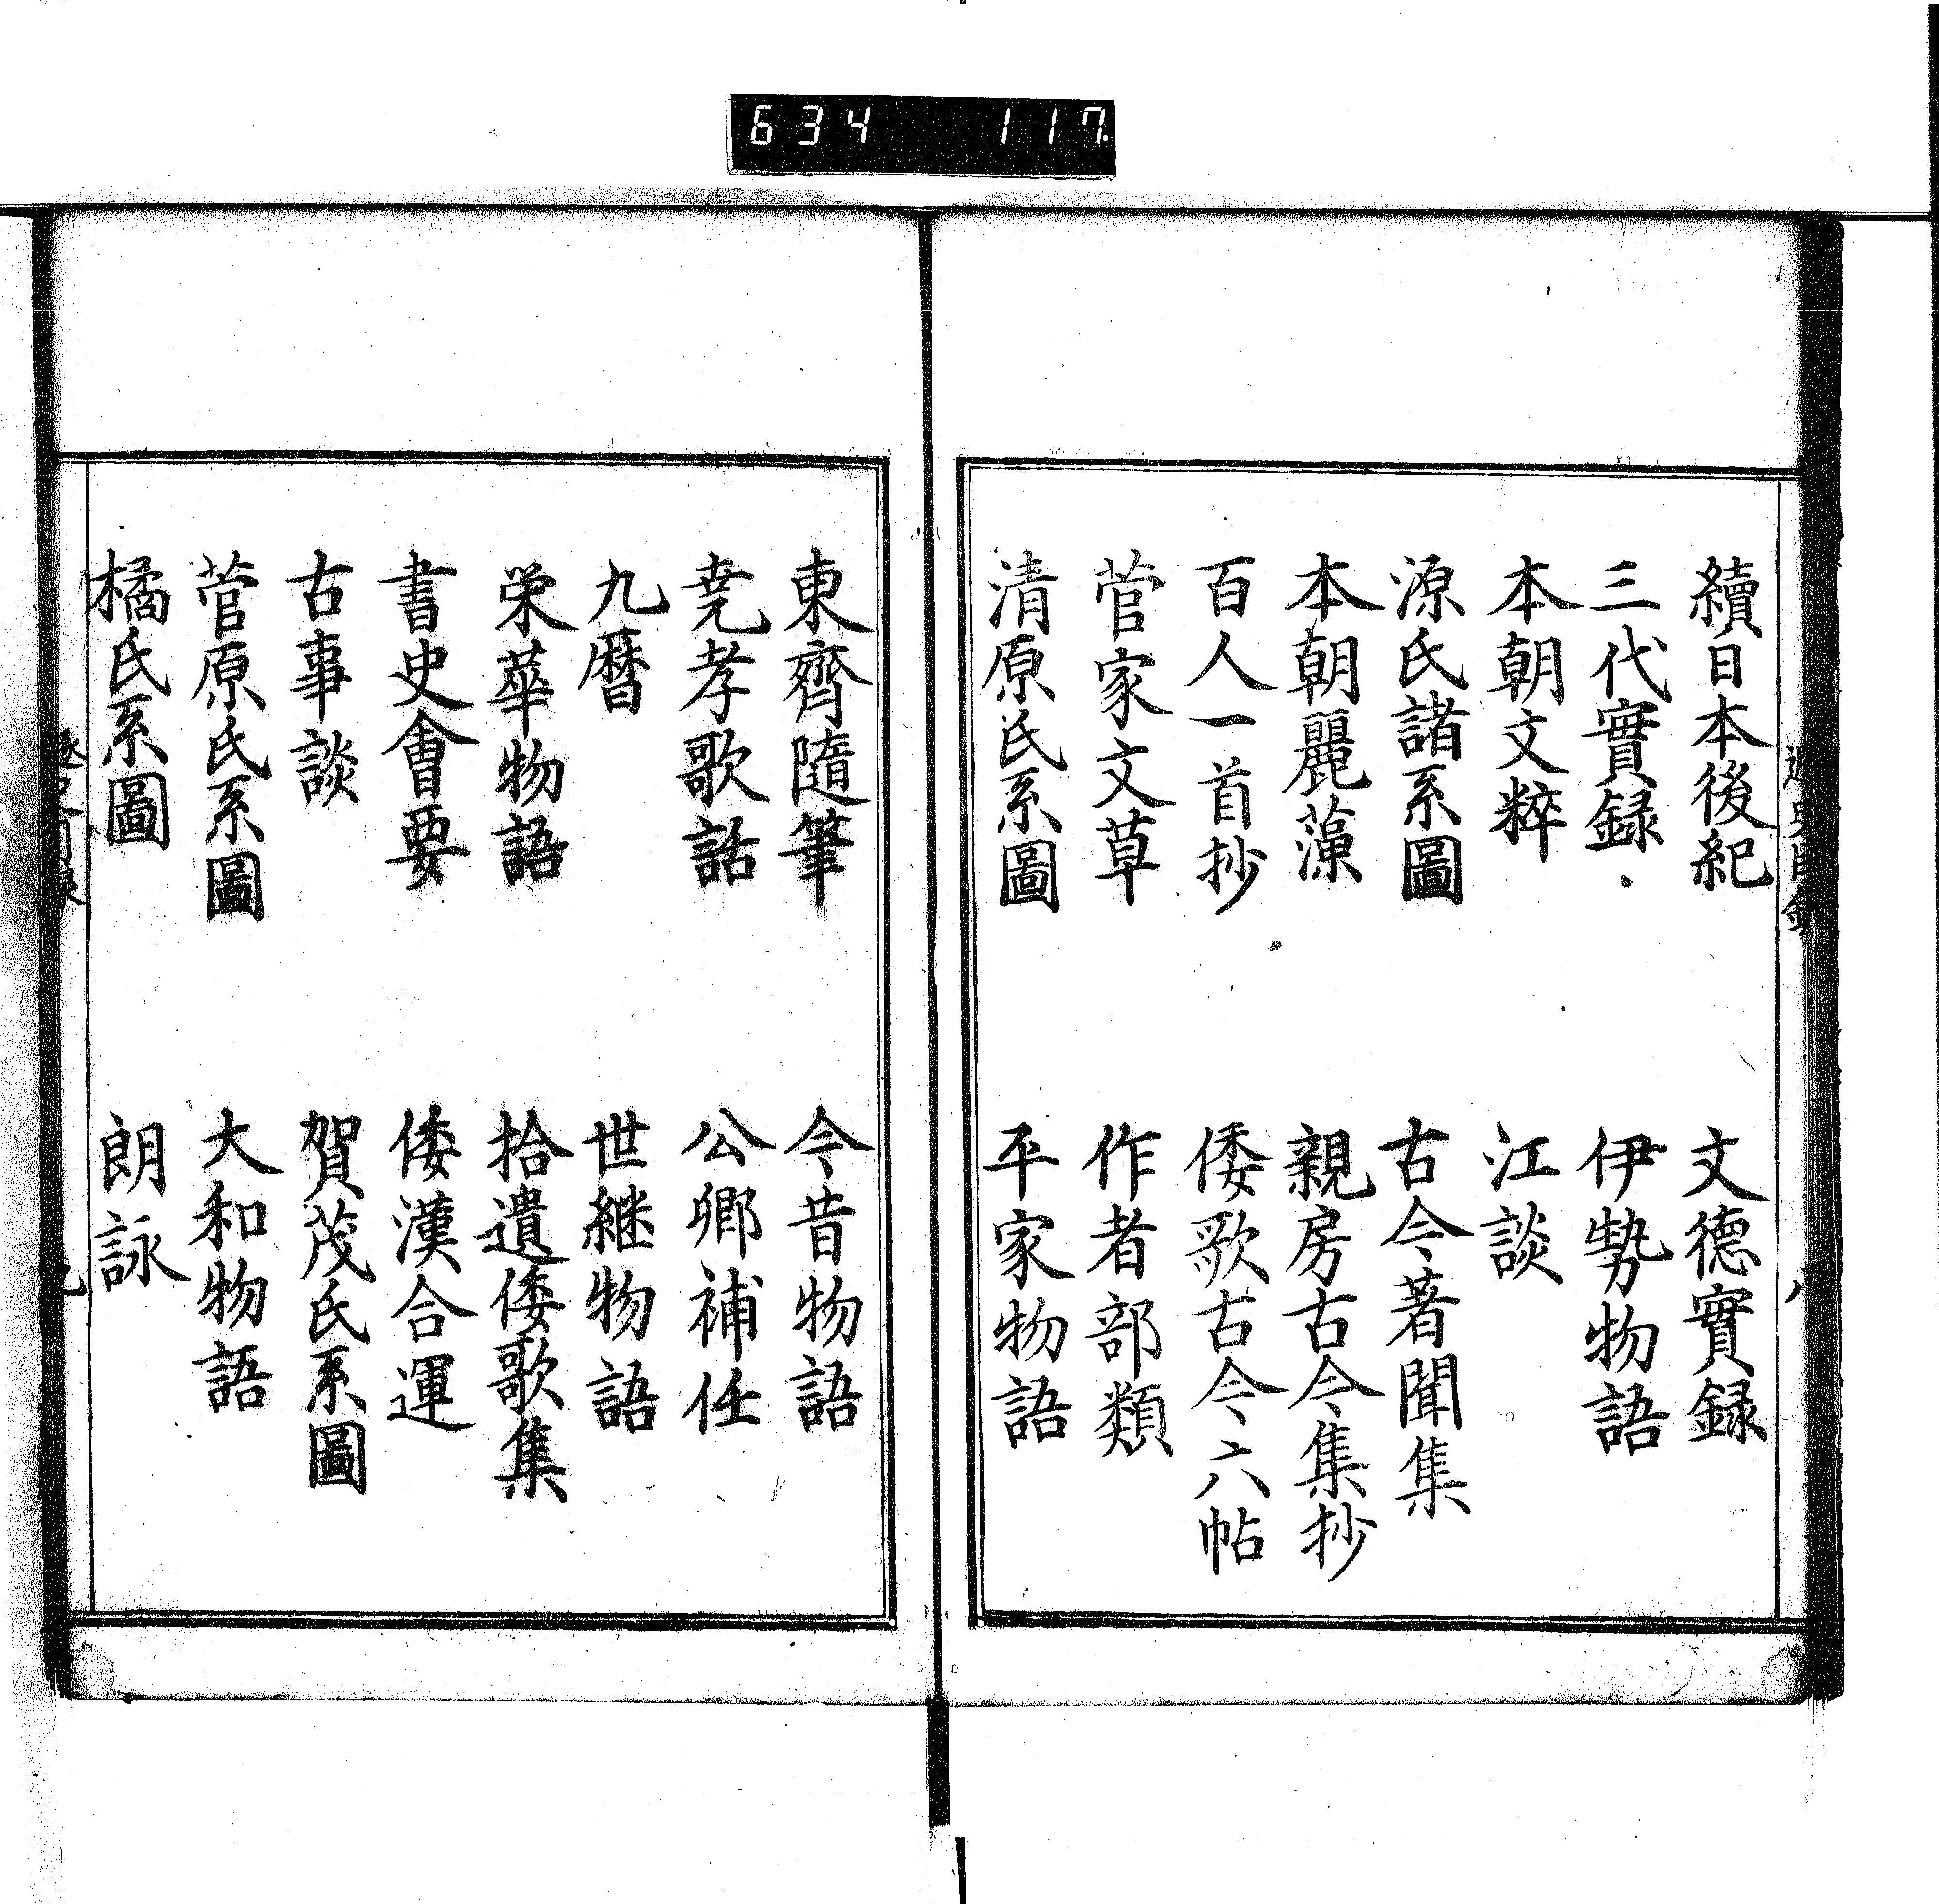 634 117.
續日本後紀 文德實録
三代實録 伊勢物語
本朝文粹 江談
源氏諸系圖 古今著聞集
本朝麗藻 親房古今集抄
百人一首抄 倭歌古今六帖
菅家文草 作者部類
清原氏系圖 平家物語
東齊隨筆 今昔物語
尭孝歌話 公卿補任
九暦 世継物語
栄華物語 拾遺倭歌集
書史會要 倭漢合運
古事談 賀茂氏系圖
菅原氏系圖 大和物語
橘氏系圖 朗詠